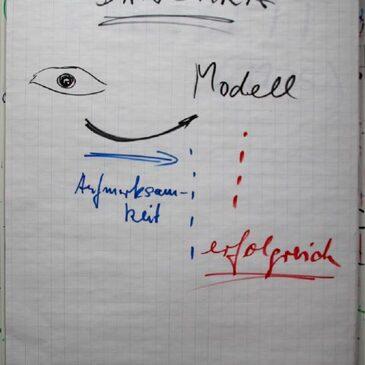 Modell
Aufmerksam-
keit
erfolgreich